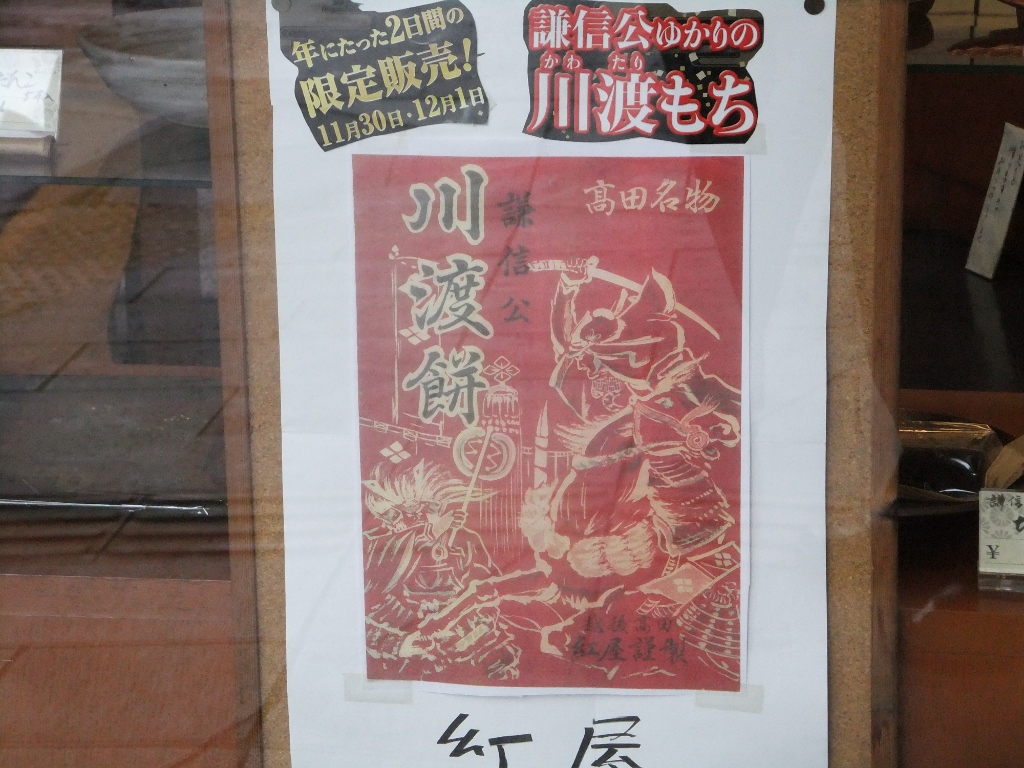 年にたった2日間の
限定販売!
11月30日・12月1日
謙信公ゆかりの
かわ たり
川渡もち
高田名物
謙信公
川渡餅
越後高田
紅屋謹製
紅屋
謙信
¥